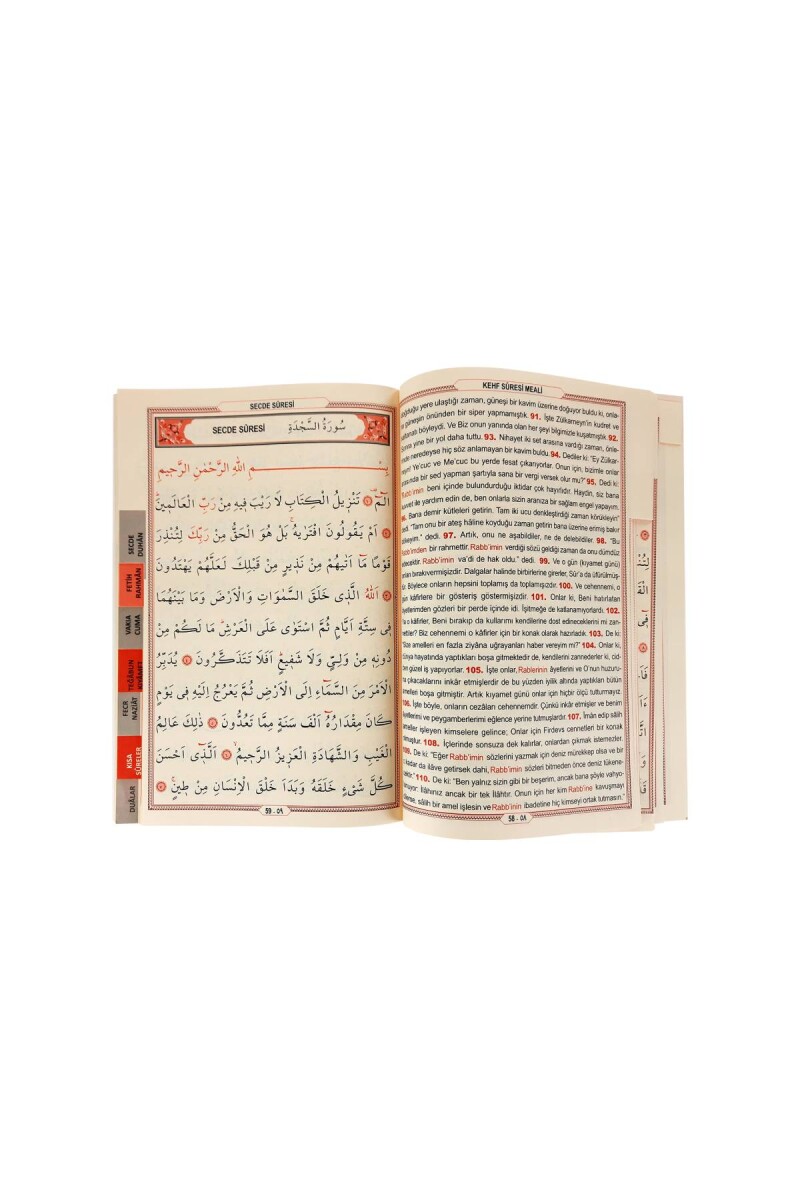 KEHF SÛRESİ MEALİ
doğduğu yere ulaştığı zaman, güneşi bir kavim üzerine doğuyor buldu ki, onla-
güneşin önünden bir siper yapmamıştık. 91. İşte Zülkarneyn'in kudret ve
saltanatı böyleydi. Ve Biz onun yanında olan her şeyi bilgimizle kuşatmıştık. 92.
Sonra yine bir yol daha tuttu. 93. Nihayet iki set arasına vardığı zaman, önle-
neredeyse hiç söz anlamayan bir kavim buldu. 94. Dediler ki: "Ey Zülkar-
neyn! Ye'cuc ve Me'cuc bu yerde fesat çıkarıyorlar. Onun için, bizimle onlar
arasında bir sed yapman şartıyla sana bir vergi versek olur mu?" 95. Dedi ki:
"Rabb'imin beni içinde bulundurduğu iktidar çok hayırlıdır. Haydin, siz bana
kuvvet ile yardım edin de, ben onlarla sizin aranıza bir sağlam engel yapayım.
96. Bana demir kütleleri getirin. Tam iki ucu denkleştirdiği zaman körükleyin"
dedi. "Tam onu bir ateş hâline koyduğu zaman getirin bana üzerine erimiş bakır
dökeyim." dedi. 97. Artık, onu ne aşabildiler, ne de delebildiler. 98. "Bu
Rabb'imden bir rahmettir. Rabb'imin verdiği sözü geldiği zaman da onu dümdüz
edecektir. Rabb'imin va'di de hak oldu." dedi. 99. Ve o gün (kıyamet günü)
onları bırakıvermişizdir. Dalgalar halinde birbirlerine girerler, Sûr'a da üfürülmüş-
tür. Böylece onların hepsini toplamış da toplamışızdır. 100. Ve cehennemi, o
gün kâfirlere bir gösteriş göstermişizdir. 101. Onlar ki, Beni hatırlatan
âyetlerimden gözleri bir perde içinde idi. İşitmeğe de katlanamıyorlardı. 102.
Ya o kâfirler, Beni bırakıp da kullarımı kendilerine dost edineceklerini mi zan-
nettiler? Biz cehennemi o kâfirler için bir konak olarak hazırladık. 103. De ki:
"Size amelleri en fazla ziyâna uğrayanları haber vereyim mi?" 104. Onlar ki,
dünya hayatında yaptıkları boşa gitmektedir de, kendilerini zannederler ki, cid-
den güzel iş yapıyorlar. 105. İşte onlar, Rablerinin âyetlerini ve O'nun huzuru-
na çıkacaklarını inkâr etmişlerdir de bu yüzden iyilik adına yaptıkları bütün
amelleri boşa gitmiştir. Artık kıyamet günü onlar için hiçbir ölçü tutturmayız.
106. İşte böyle, onların cezâları cehennemdir. Çünkü inkâr etmişler ve benim
âyetlerimi ve peygamberlerimi eğlence yerine tutmuşlardır. 107. İmân edip sâlih
ameller işleyen kimselere gelince; Onlar için Firdevs cennetleri bir konak
olmuştur. 108. İçlerinde sonsuza dek kalırlar, onlardan çıkmak istemezler.
109. De ki: "Eğer Rabb'imin sözlerini yazmak için deniz mürekkep olsa ve bir
o kadar da ilâve getirsek dahi, Rabb'imin sözleri bitmeden önce deniz tükene-
cektir." 110. De ki: "Ben yalnız sizin gibi bir beşerim, ancak bana şöyle vahyo-
lunuyor: İlâhınız ancak bir tek İlâhtır. Onun için her kim Rabb'ine kavuşmayı
ümit ederse, sâlih bir amel işlesin ve Rabb'inin ibadetine hiç kimseyi ortak tutmasın."
58 - ٥٨
SECDE SÛRESİ
SECDE SÛRESİ سُورَةُ السَّجْدَةِ
بِسْمِ اللّٰهِ الرَّحْمٰنِ الرَّحٖيمِ
الٓمٓ ۞ تَنْزٖيلُ الْكِتَابِ لَا رَيْبَ فٖيهِ مِنْ رَبِّ الْعَالَمٖينَۜ
۞ اَمْ يَقُولُونَ افْتَرٰيهُۚ بَلْ هُوَ الْحَقُّ مِنْ رَبِّكَ لِتُنْذِرَ
قَوْمًا مَٓا اَتٰيهُمْ مِنْ نَذٖيرٍ مِنْ قَبْلِكَ لَعَلَّهُمْ يَهْتَدُونَ
۞ اَللّٰهُ الَّذٖي خَلَقَ السَّمٰوَاتِ وَالْاَرْضَ وَمَا بَيْنَهُمَا
فٖي سِتَّةِ اَيَّامٍ ثُمَّ اسْتَوٰى عَلَى الْعَرْشِۜ مَا لَكُمْ مِنْ
دُونِهٖ مِنْ وَلِيٍّ وَلَا شَفٖيعٍۜ اَفَلَا تَتَذَكَّرُونَ ۞ يُدَبِّرُ
الْاَمْرَ مِنَ السَّمَٓاءِ اِلَى الْاَرْضِ ثُمَّ يَعْرُجُ اِلَيْهِ فٖي يَوْمٍ
كَانَ مِقْدَارُهُٓ اَلْفَ سَنَةٍ مِمَّا تَعُدُّونَ ۞ ذٰلِكَ عَالِمُ
الْغَيْبِ وَالشَّهَادَةِ الْعَزٖيزُ الرَّحٖيمُۙ ۞ اَلَّذٖٓي اَحْسَنَ
كُلَّ شَيْءٍ خَلَقَهُ وَبَدَاَ خَلْقَ الْاِنْسَانِ مِنْ طٖينٍۚ ۞
59 - ٥٩
SECDE
DUHÂN
FETİH
RAHMÂN
VAKIA
CUMA
TEĞÂBUN
FECR
NAZİÂT
KISA
SÛRELER
DUÂLAR